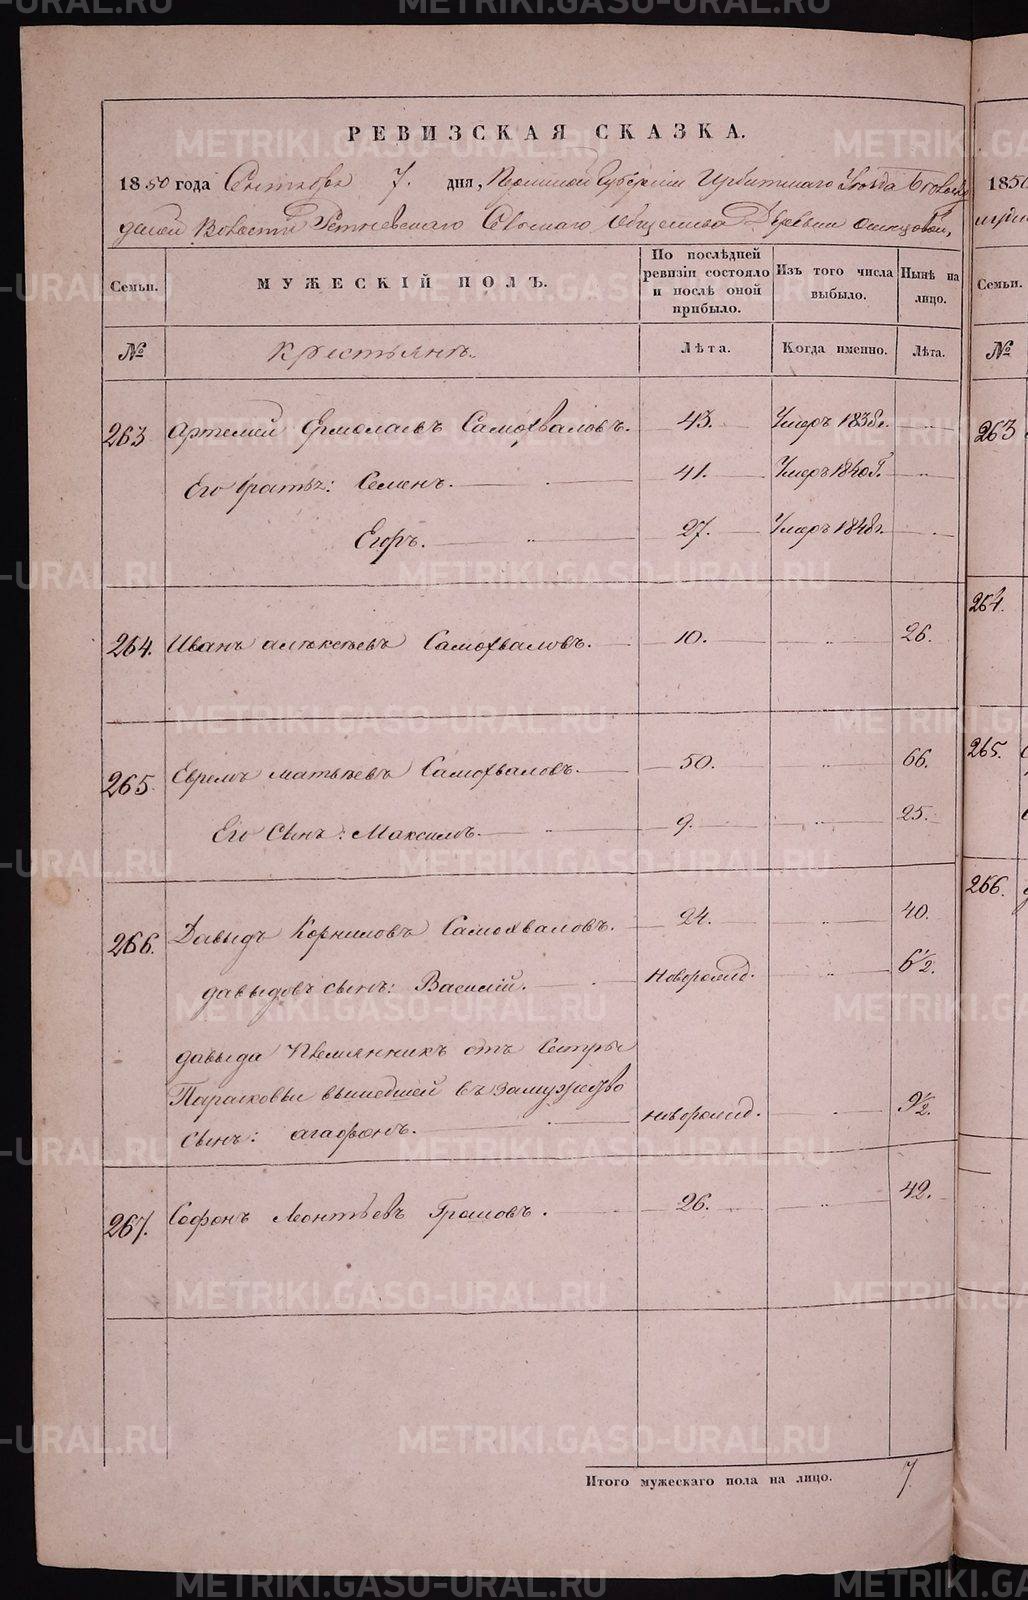 РЕВИЗСКАЯ СКАЗКА.
1850 года Сентября 7. дня, Пермской Губернiи Ирбитскаго Уѣзда
Волости Сельскаго Общества Деревни
Семьи. МУЖЕСКIЙ ПОЛЪ. По послѣдней ревизiи состояло и послѣ оной прибыло. Изъ того числа выбыло. Нынѣ на лицо.
№ Крестьянъ. Лѣта. Когда именно. Лѣта.
263 Артемей Ермолаевъ Самохваловъ. 43. Умеръ 1838г.
Его братья: Семенъ. 41. Умеръ 1840г.
Егоръ. 27. Умеръ 1848г.
264. Иванъ алексѣевъ Самохваловъ. 10. 26.
265. Ефремъ матвѣевъ Самохваловъ. 50. 66.
Его Сынъ: Максимъ. 9. 25.
266. Давыдъ Корниловъ Самохваловъ. 24. 40.
давыдовъ сынъ: Василiй. новорожд. 6 1/2.
давыда Племянникъ отъ Сестры
Парасковьи вышедшей въ замужество
Сынъ: агафонъ. новорожд. 9 1/2.
267. Софонъ Леонтьевъ Громовъ. 26. 42.
Итого мужескаго пола на лицо. 7
1850
Семьи.
№
263
264.
265.
266.
METRIKI.GASO-URAL.RU